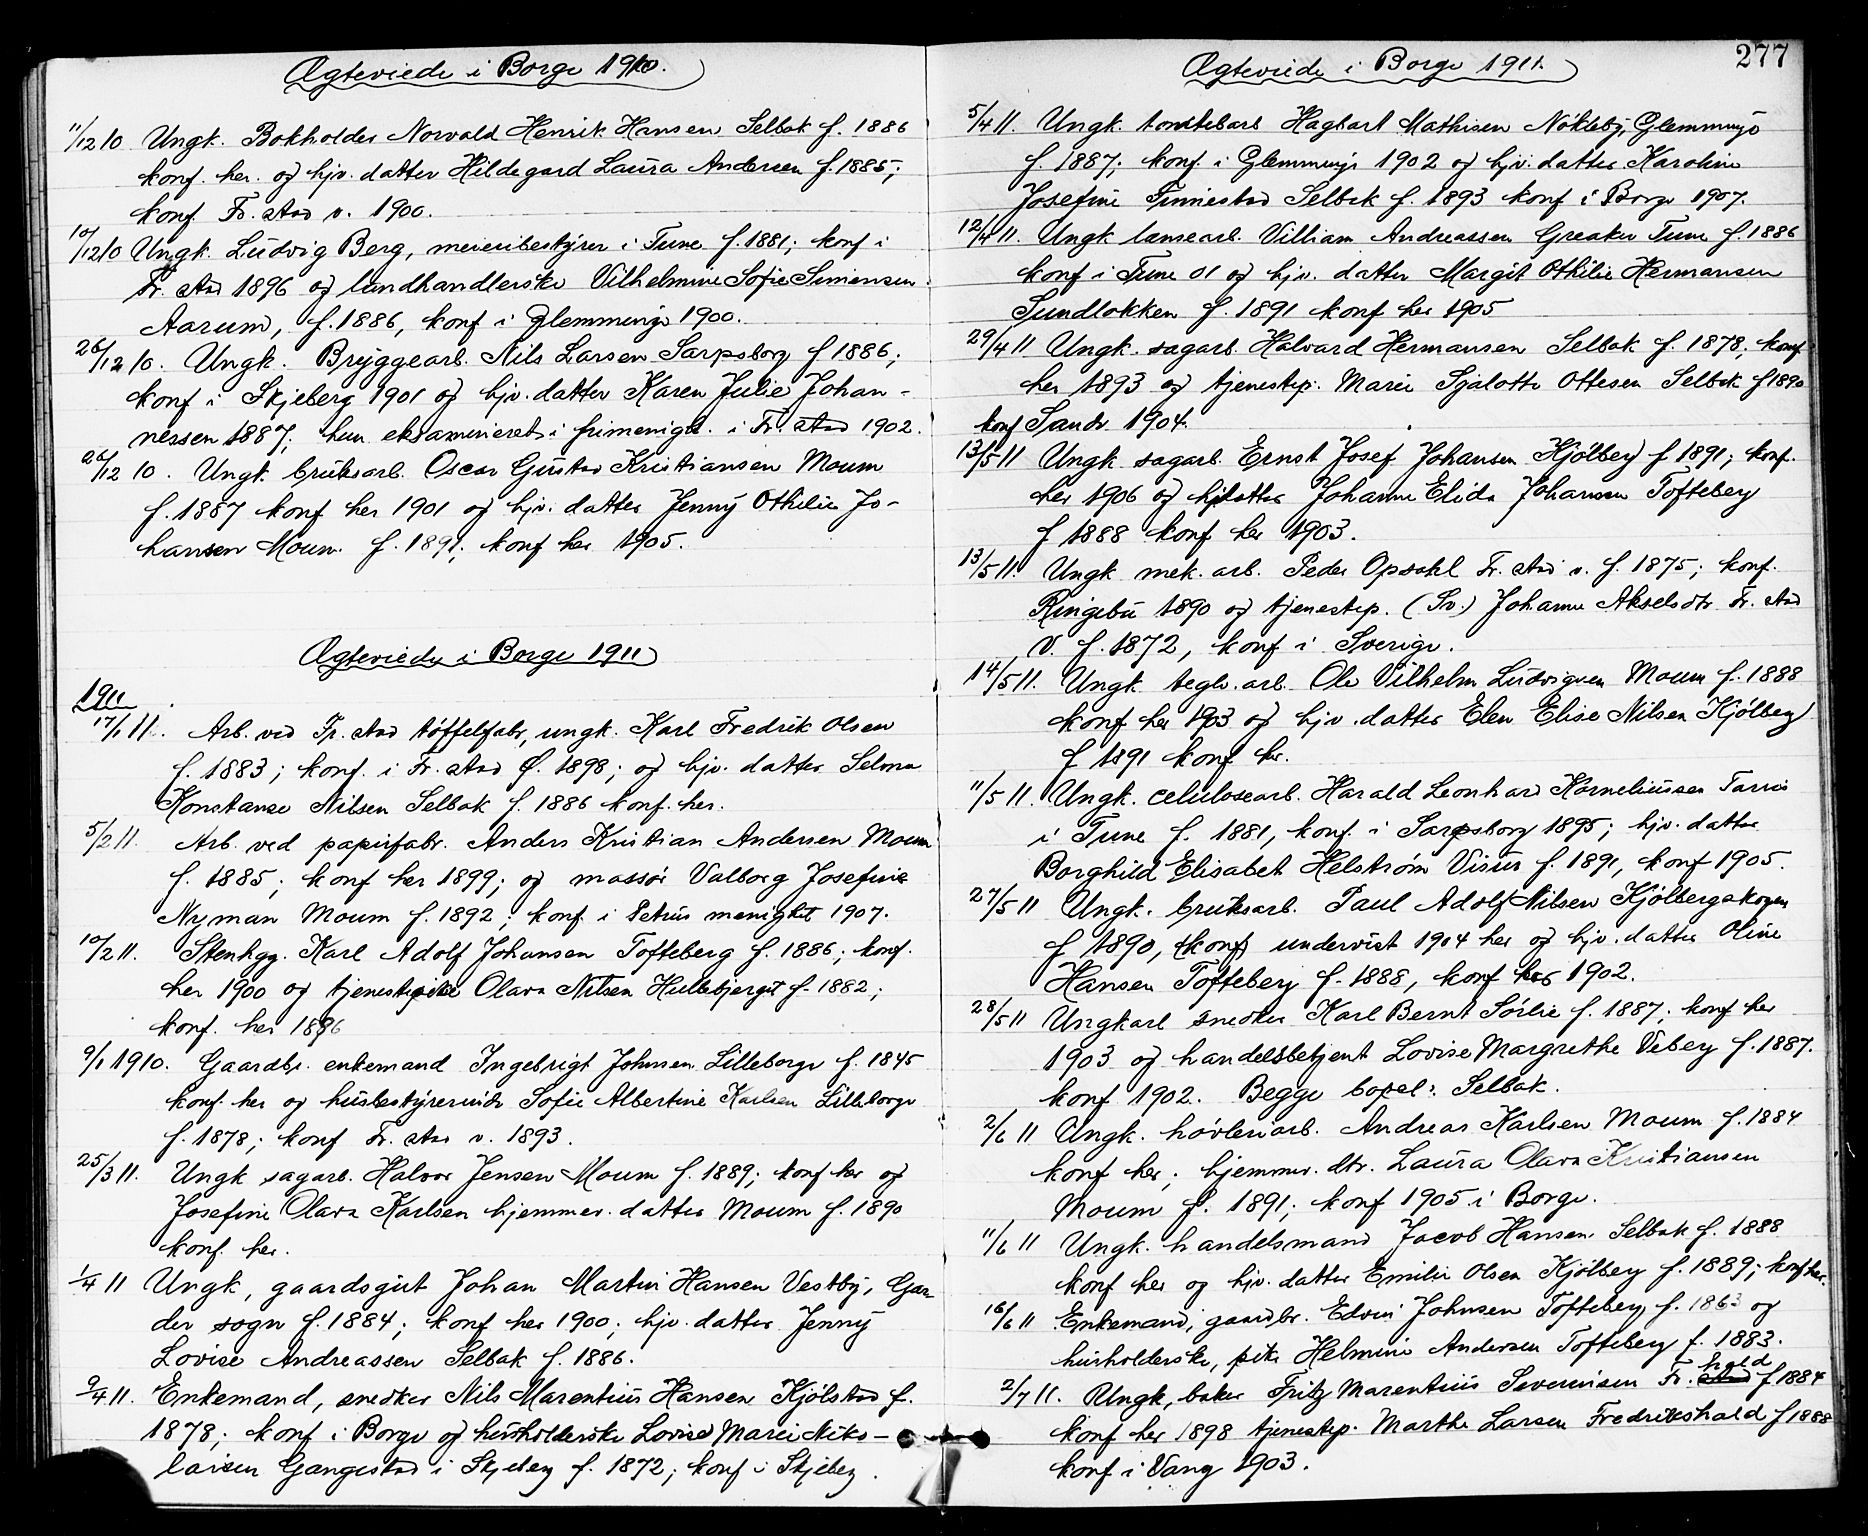 Ægteviede i Borge 1910.
11/12 10 Ungk. Bokholder Norvald Henrik Hansen Selbak f. 1886
konf. her. og hjv. datter Hildegard Laura Andersen f. 1885;
konf. Fr. stad v. 1900.
10/12 10 Ungk. Ludvig Berg, meieribestyrer i Tune f. 1881; konf i
Fr. stad 1896 og landhandlerske Vilhelmine Sofie Simensen
Aarum, f. 1886, konf i Glemminge 1900.
26/12 10. Ungk. Bryggearb. Nils Larsen Sarpsborg f 1886;
konf i Skjeberg 1901 og hjv. datter Karen Julie Johan-
nessen 1887; hun eksamineret i frimenigh. i Fr. stad 1902.
26/12 10. Ungk. bruksarb. Oscar Gustav Kristiansen Moum
f. 1887 konf her 1901 og hjv. datter Jenny Othilie Jo-
hansen Moum. f. 1891; konf her 1905.
Ægteviede i Borge 1911
1911
17/1 11. Arb. ved Fr. stad tøffelfabr, ungk. Karl Fredrik Olsen
f. 1883; konf. i Fr. stad Ø. 1898; og hjv. datter Selma
Konstanse Nilsen Selbak f. 1886 konf. her.
5/2 11. Arb. ved papirfabr. Anders Kristian Andersen Moum
f. 1885; konf her 1899; og massør Valborg Josefine
Nyman Moum f. 1892; konf. i Petrus menighet 1907.
10/2 11. Stenhgg. Karl Adolf Johansen Tofteberg f. 1886; konf.
her 1900 og tjenestepike Olava Nilsen Hullebjerget f. 1882;
konf. her 1896
9/1 1910. Gaardbr. enkemand Ingebrigt Johnsen Lilleborge f. 1845
konf. her og husbestyrerinde Sofie Albertine Karlsen Lilleborge
f. 1878; konf Fr. stad v. 1893.
25/3 11. Ungk sagarb. Halvor Jensen Moum f. 1889; konf her og
Josefine Olava Karlsen hjemmev. datter Moum f. 1890
konf. her.
1/4 11 Ungk, gaardsgut Johan Martin Hansen Vestby, Gar-
der sogn f. 1884; konf her 1900; hjv. datter Jenny
Lovise Andreassen Selbak f. 1886.
9/4 11. Enkemand, snedker Nils Marentius Hansen Kjølstad f.
1878; konf i Borge og husholderske Lovise Marie Niko-
laisen Gangestad i Skjeberg f. 1872; konf i Skjeberg.
277
Ægteviede i Borge 1911.
5/4 11. Ungk. tomtebarb Hagbart Mathisen Nøkleby, Glemminge
f. 1887; konf. i Glemminge 1902 og hjv. datter Karoline
Josefine Finnestad Selbak f. 1893 konf i Borge 1907.
12/4 11. Ungk. lansearb. Villiam Andreassen Greaker Tune f. 1886
konf i Tune 01 og hjv. datter Margit Othilie Hermansen
Sundløkken f. 1891 konf her 1905
29/4 11 Ungk. sagarb. Halvard Hermansen Selbak f. 1878; konf.
her 1893 og tjenestep. Marie Sjalotte Ottesen Selbak f 1890
konf Sandv 1904.
13/5 11 Ungk. sagarb. Ernst Josef Johansen Kjølberg f 1891; konf.
her 1906 og hjdatter Johanne Elida Johansen Tofteberg
f 1888 konf her 1903.
13/5 11. Ungk mek. arb. Peder Opsahl Fr. stad v. f. 1875; konf.
Ringebu 1890 og tjenestep. (Sv.) Johanne Akselsdtr. Fr. stad
V. f. 1872, konf i Sverige.
14/5 11. Ungk teglv. arb. Ole Vilhelm Ludvigsen Moum f. 1888
konf her 1903 og hjv. datter Elen Elise Nilsen Kjølberg
f 1891 konf her.
11/5 11. Ungk. celulosearb. Harald Leonhard Korneliussen Tarris
i Tune f. 1881, konf. i Sarpsborg 1895; hjv. datter
Borghild Elisabet Helstrøm Visur f. 1891, konf 1905.
27/5 11 Ungk. bruksarb. Paul Adolf Nilsen Kjølbergskogen
f 1890, (konf) undervist 1904 her og hjv. datter Oline
Hansen Tofteberg f. 1888, konf her 1902.
28/5 11 Ungkarl snedker Karl Bernt Sørlie f. 1887; konf her
1903 og handelsbetjent Lovise Margrethe Viberg f. 1887.
konf 1902. Begge bopel: Selbak.
2/6 11 Ungk. høvleriarb. Andreas Karlsen Moum f. 1884
konf her; hjemmev. dtr. Laura Olava Kristiansen
Moum f. 1891; konf 1905 i Borge.
11/6 11 Ungk. handelsmand Jacob Hansen Selbak f. 1888
konf her og hjv. datter Emilie Olsen Kjølberg f. 1889; konf her.
16/6 11 Enkemand, gaardbr. Edvin Johnsen Tofteberg f. 1863 og
husholderske, pike Helmine Andersen Tofteberg f. 1883.
2/7 11. Ungk, baker Fritz Marentius Severinsen Fr. stad hald f 1884
konf her 1898 tjenestep. Marthe Larsen Fredrikshald f 1888
konf i Vang 1903.